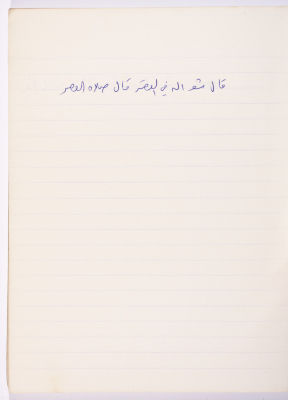 قال شو اله في العصر قال صلاه العصر